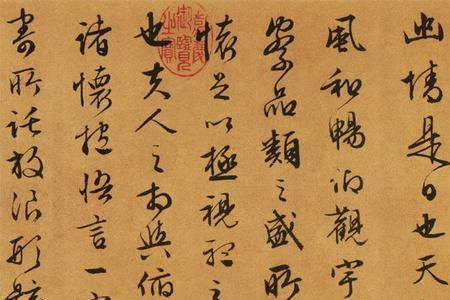 幽情是日也天
風和暢仰觀宇
察品類之盛所
懷足以極視聽之
也夫人之相與俯
諸懷抱悟言一室
寄所託放浪形骸